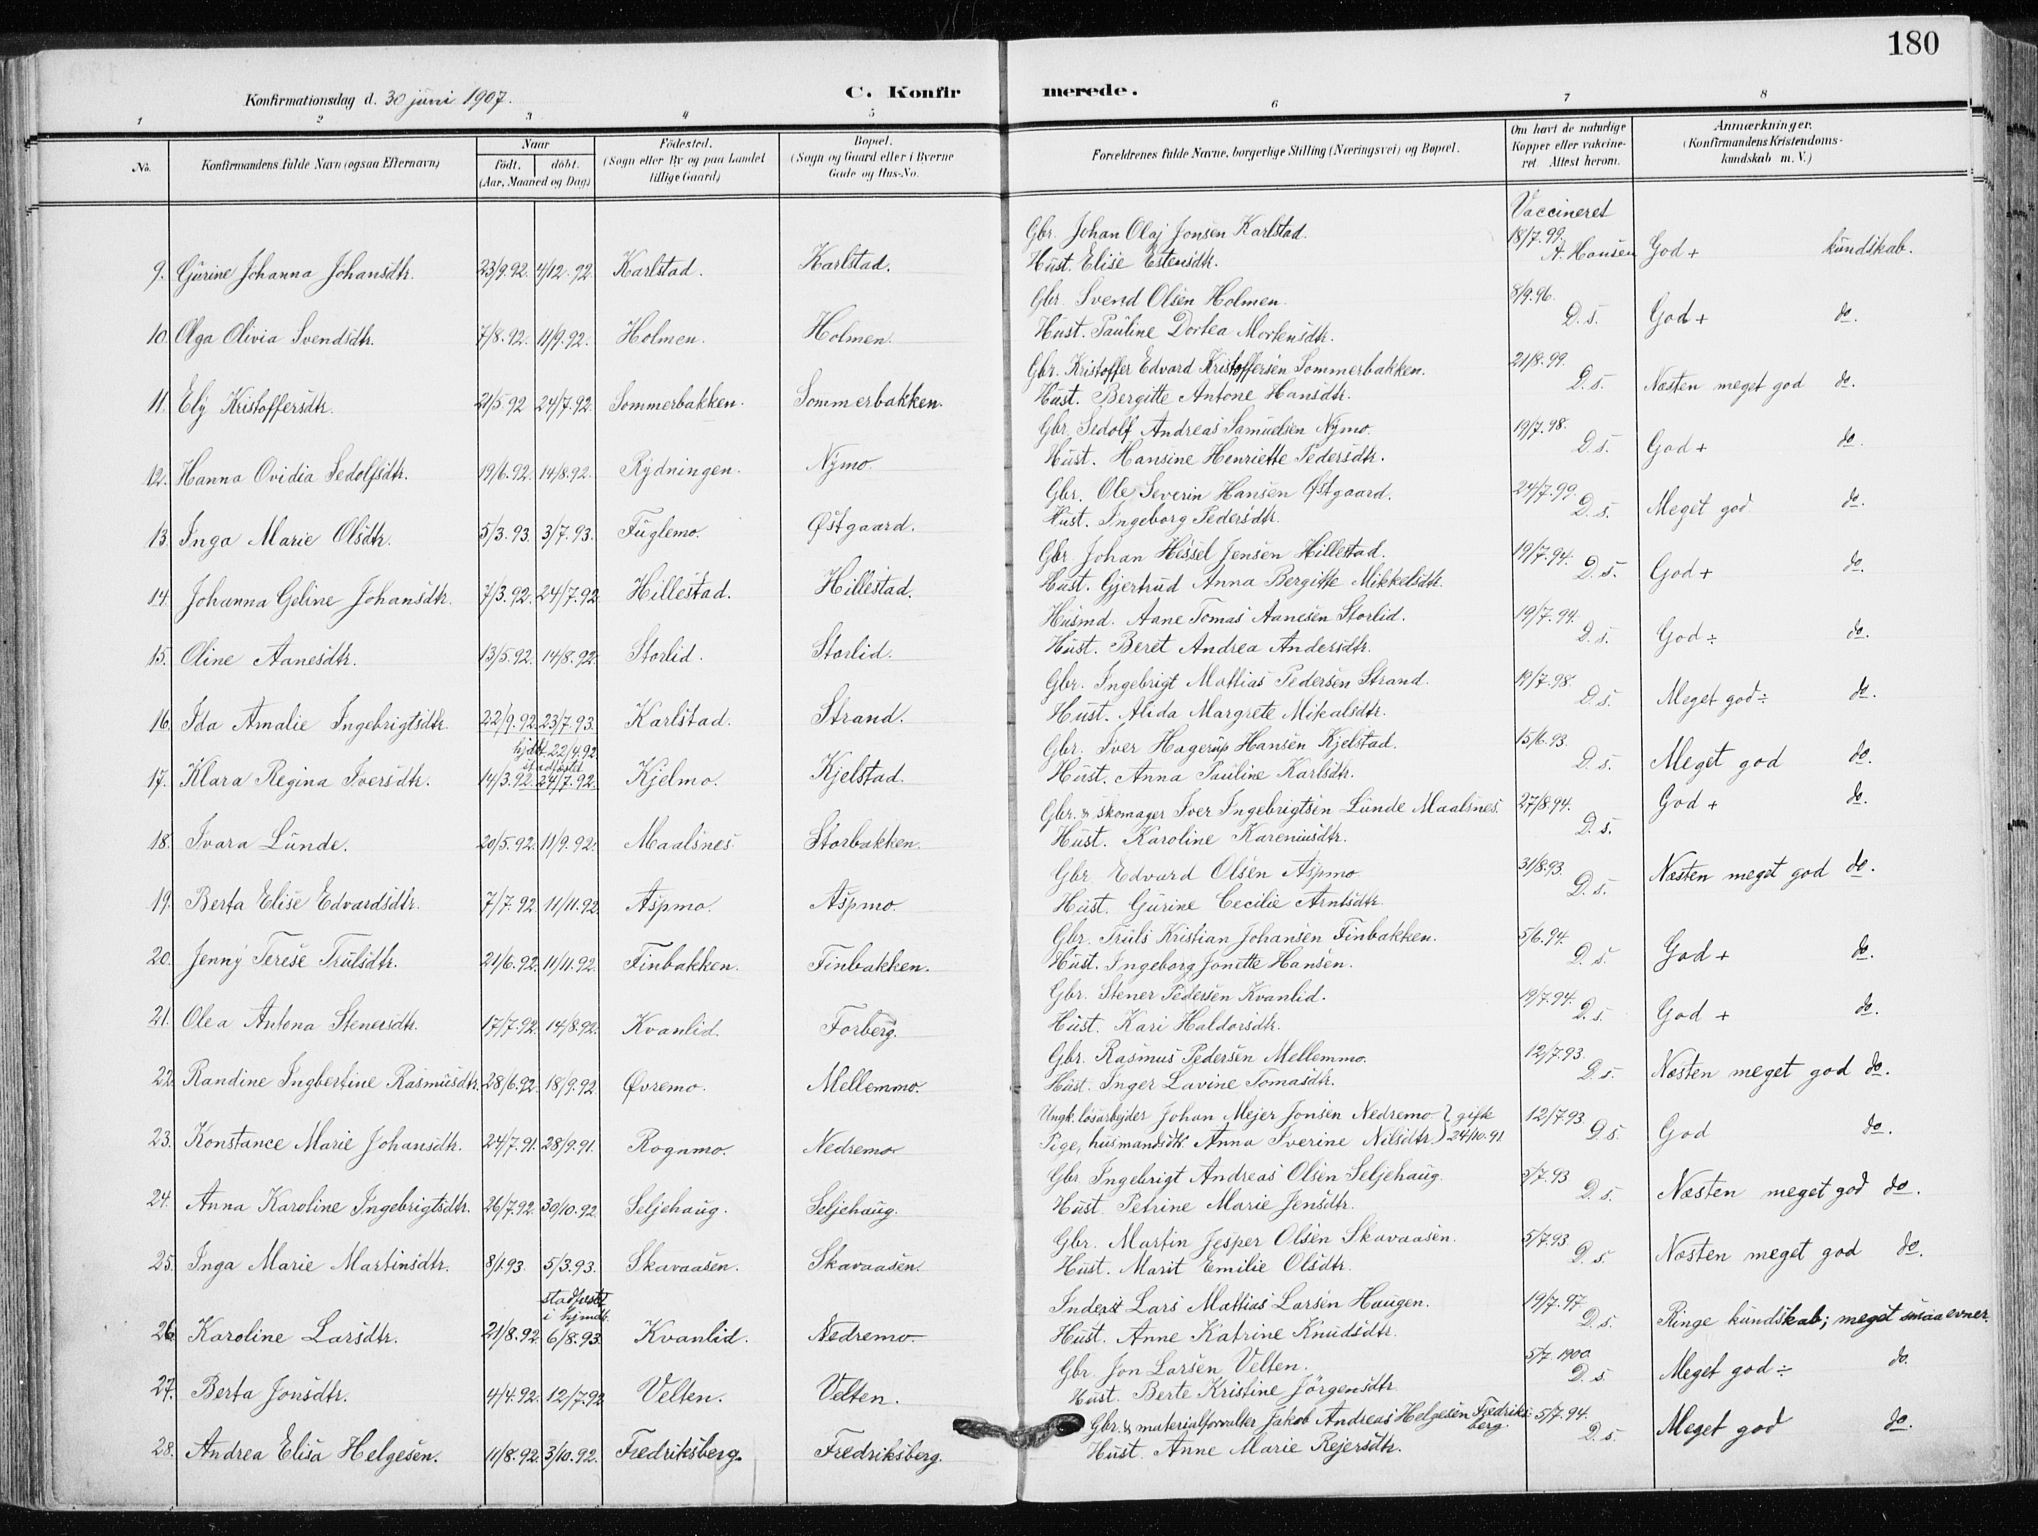 180
Konfirmationsdag d. 30 juni 1907.
C. Konfirmerede.
1 2 3 4 5 6 7 8
No.
Konfirmandens fulde Navn (ogsaa Efternavn)
Naar
født. døbt.
(Aar, Maaned og Dag)
Fødested.
(Sogn eller By og paa Landet
tillige Gaard)
Bopæl.
(Sogn og Gaard eller i Byerne
Gade og Hus-No.
Forældrenes fulde Navne, borgerlige Stilling (Næringsvei) og Bopæl.
Om havt de naturlige
Kopper eller vakcine-
ret. Attest herom.
Anmærkninger.
(Konfirmandens Kristendoms-
kundskab m. V.)
Vaccineret
Gbr. Johan Olaj Jonsen Karlstad. 18/7.99.
9. Gurine Johanna Johansdtr. 23/9.92. 4/12.92. Karlstad. Karlstad. Hust. Elise Estensdtr. A. Hansen God + kundskab.
Gbr. Svend Olsen Holmen. 8/9.96.
10. Olga Olivia Svendsdtr. 7/8.92. 11/9.92. Holmen. Holmen. Hust. Pauline Dortea Mortensdtr. D. s. God + do.
Gbr. Kristoffer Edvard Kristoffersen Sommerbakken. 21/8.99.
11. Ely Kristoffersdtr. 21/5.92 24/7.92. Sommerbakken. Sommerbakken. Hust. Bergitte Antone Hansdtr. D. s. Næsten meget god do.
Gbr. Sedolf Andreas Samuelsen Nymo. 19/7.98.
12. Hanna Ovidia Sedolfsdtr. 19/6.92. 14/8.92. Rydningen. Nymo. Hust. Hansine Henriette Pedersdtr. D. s. God + do.
Gbr. Ole Severin Hansen Østgaard. 24/7.99.
13. Inga Marie Olsdtr. 5/3.93. 3/7.93. Fuglemo. Østgaard. Hust. Ingeborg Pedersdtr. D. s. Meget god do.
Gbr. Johan Hessel Jensen Hillestad. 19/7.94.
14. Johanna Geline Johansdtr. 7/3.92. 24/7.92 Hillestad. Hillestad. Hust. Gjertrud Anna Bergitte Mikkelsdtr. D. s. God + do.
Husmd. Aane Tomas Aanesen Storlid. 19/7.94.
15. Oline Aanesdtr. 13/5.92. 14/8.92. Storlid. Storlid. Hust. Beret Andrea Andersdtr. D. s. God ÷ do.
Gbr. Ingebrigt Mattias Pedersen Strand. 19/7.98.
16. Ida Amalie Ingebrigtsdtr. 22/9.92. 23/7.93. Karlstad. Strand. Hust. Alida Margrete Mikalsdtr. D. s. Meget god ÷ do.
hjdbt 22/4.92
stadfæstet
Gbr. Iver Hagerup Hansen Kjelstad. 15/6.93.
17. Klara Regina Iversdtr. 14/3.92. 24/7.92. Kjelmo. Kjelstad. Hust. Anna Pauline Karlsdtr. D. s. Meget god do.
Gbr. & skomager Iver Ingebrigtsen Lunde Maalsnes. 27/8.94. God + do.
18. Ivara Lunde. 20/5.92. 11/9.92. Maalsnes Storbakken. Hust. Karoline Kareniusdtr. D. s.
Gbr. Edvard Olsen Aspmo. 31/8.93.
19. Berta Elise Edvardsdtr. 7/7.92. 11/11.92. Aspmo. Aspmo. Hust. Gurine Cecilie Arntsdtr. D. s. Næsten meget god do.
Gbr. Truls Kristian Johansen Finbakken. 5/6.94.
20. Jenny Terese Trulsdtr. 21/6.92. 11/11.92. Finbakken. Finbakken. Hust. Ingeborg Jonette Hansen. D. s. God + do.
Gbr. Stener Pedersen Kvanlid. 19/7.94.
21. Olea Antona Stenersdtr. 17/7.92. 14/8.92. Kvanlid. Forberg. Hust. Kari Haldorsdtr. D. s. God + do.
Gbr. Rasmus Pedersen Mellemmo. 12/7.93.
22. Randine Ingbertine Rasmusdtr. 28/6.92. 18/9.92 Øvremo. Mellemmo. Hust. Inger Lavine Tomasdtr. D. s. Næsten meget god do.
Ungk. løsarbejder Johan Mejer Jonsen Nedremo } gifte 12/7.93
23. Konstance Marie Johansdtr. 24/7.91. 28/9.91. Rognmo. Nedremo. Pige, husmandsdtr. Anna Iverine Nilsdtr. } 24/10.91 D. s. God do.
Gbr. Ingebrigt Andreas Olsen Seljehaug. 5/7.93
24. Anna Karoline Ingebrigtsdtr. 26/7.92. 30/10.92. Seljehaug. Seljehaug. Hust. Petrine Marie Jensdtr. D. s. Næsten meget god do.
Gbr. Martin Jesper Olsen Skavaasen. 5/7.93
25. Inga Marie Martinsdtr. 8/1.93. 5/3.93. Skavaasen. Skavaasen. Hust. Marit Emilie Olsdtr. D. s. Næsten meget god do.
stadfæstet
i hjmdt.
Inderst Lars Mattias Larsen Haugen. 19/7.97
26 Karoline Larsdtr. 21/8.92. 6/8.93. Kvanlid. Nedremo. Hust. Anne Katrine Knudsdtr. D. s. Ringe kundskab; meget smaa evner.
Gbr. Jon Larsen Velten. 5/7.1900.
27. Berta Jonsdtr. 4/4.92. 12/7.92 Velten. Velten. Hust. Berte Kristine Jörgensdtr. D. s. Meget god ÷ do.
Gbr. & materialforvalter Jakob Andreas Helgesen Fredriks-
berg. 5/7.94.
28. Andrea Elisa Helgesen. 11/8.92. 3/10.92. Fredriksberg. Fredriksberg. Hust. Anne Marie Rejersdtr. D. s. Meget god do.